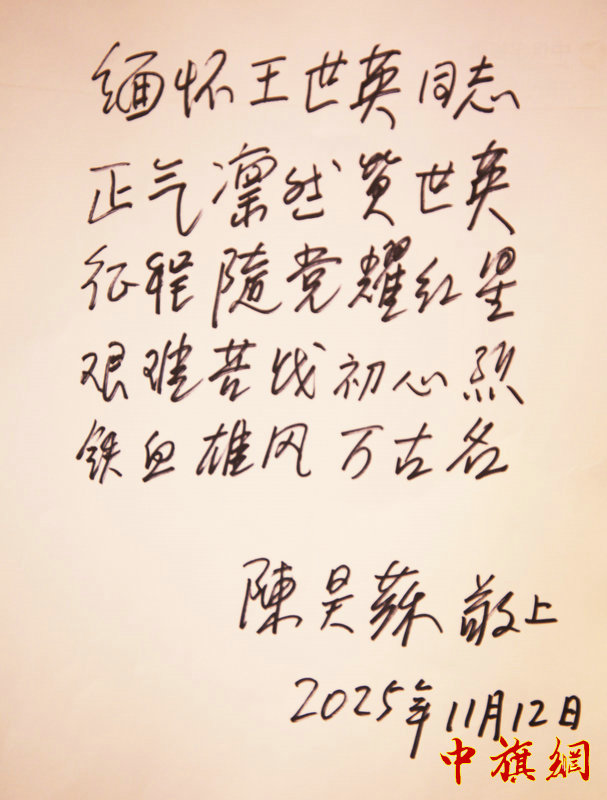 缅怀王世英同志
正气凛然赞世英
征程隨党耀红星
艰难苦战初心烈
铁血雄风万古名
陳昊蘇 敬上
2025年11月12日
中旗網